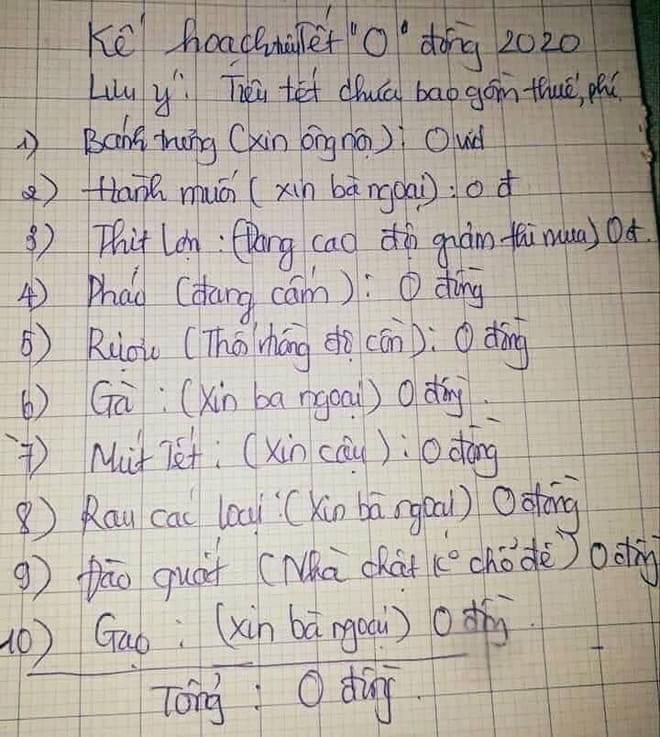 Kế hoạch chi tiêu Tết "0" đồng 2020
Lưu ý: Tiêu tết chưa bao gồm thuế, phí
1) Bánh trưng (xin ông nội): 0 vnđ
2) Hành muối (xin bà ngoại): 0 đ
3) Thịt Lợn: (Đang cao đợi giảm thì mua) 0 đ.
4) Pháo (đang cấm): 0 đồng
5) Rượu (Thổi nồng độ cồn): 0 đồng
6) Gà: (xin bà ngoại) 0 đồng.
7) Mứt Tết: (xin cậu): 0 đồng
8) Rau các loại: (Xin bà ngoại) 0 đồng
9) Đào quất (Nhà chật k° chỗ để) 0 đồng
10) Gạo: (xin bà ngoại) 0 đồng.
Tổng: 0 đồng.